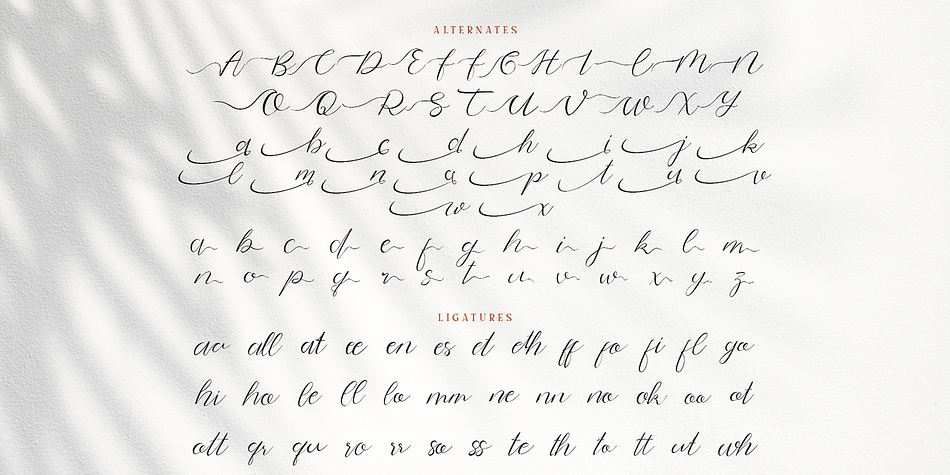 ALTERNATES
A B C D E F F G H I L M N
O Q R S T U V W X Y
a b c d h i j k
l m n a p t u v
w x
a b c d e f g h i j k l m
n o p q r s t u v w x y z
LIGATURES
aa all at ee en es et eth ff fo fi fl go
hi ho le ll lo mm ne nn no ok oo ot
ott qr qu ro rr so ss te th to tt ut wh